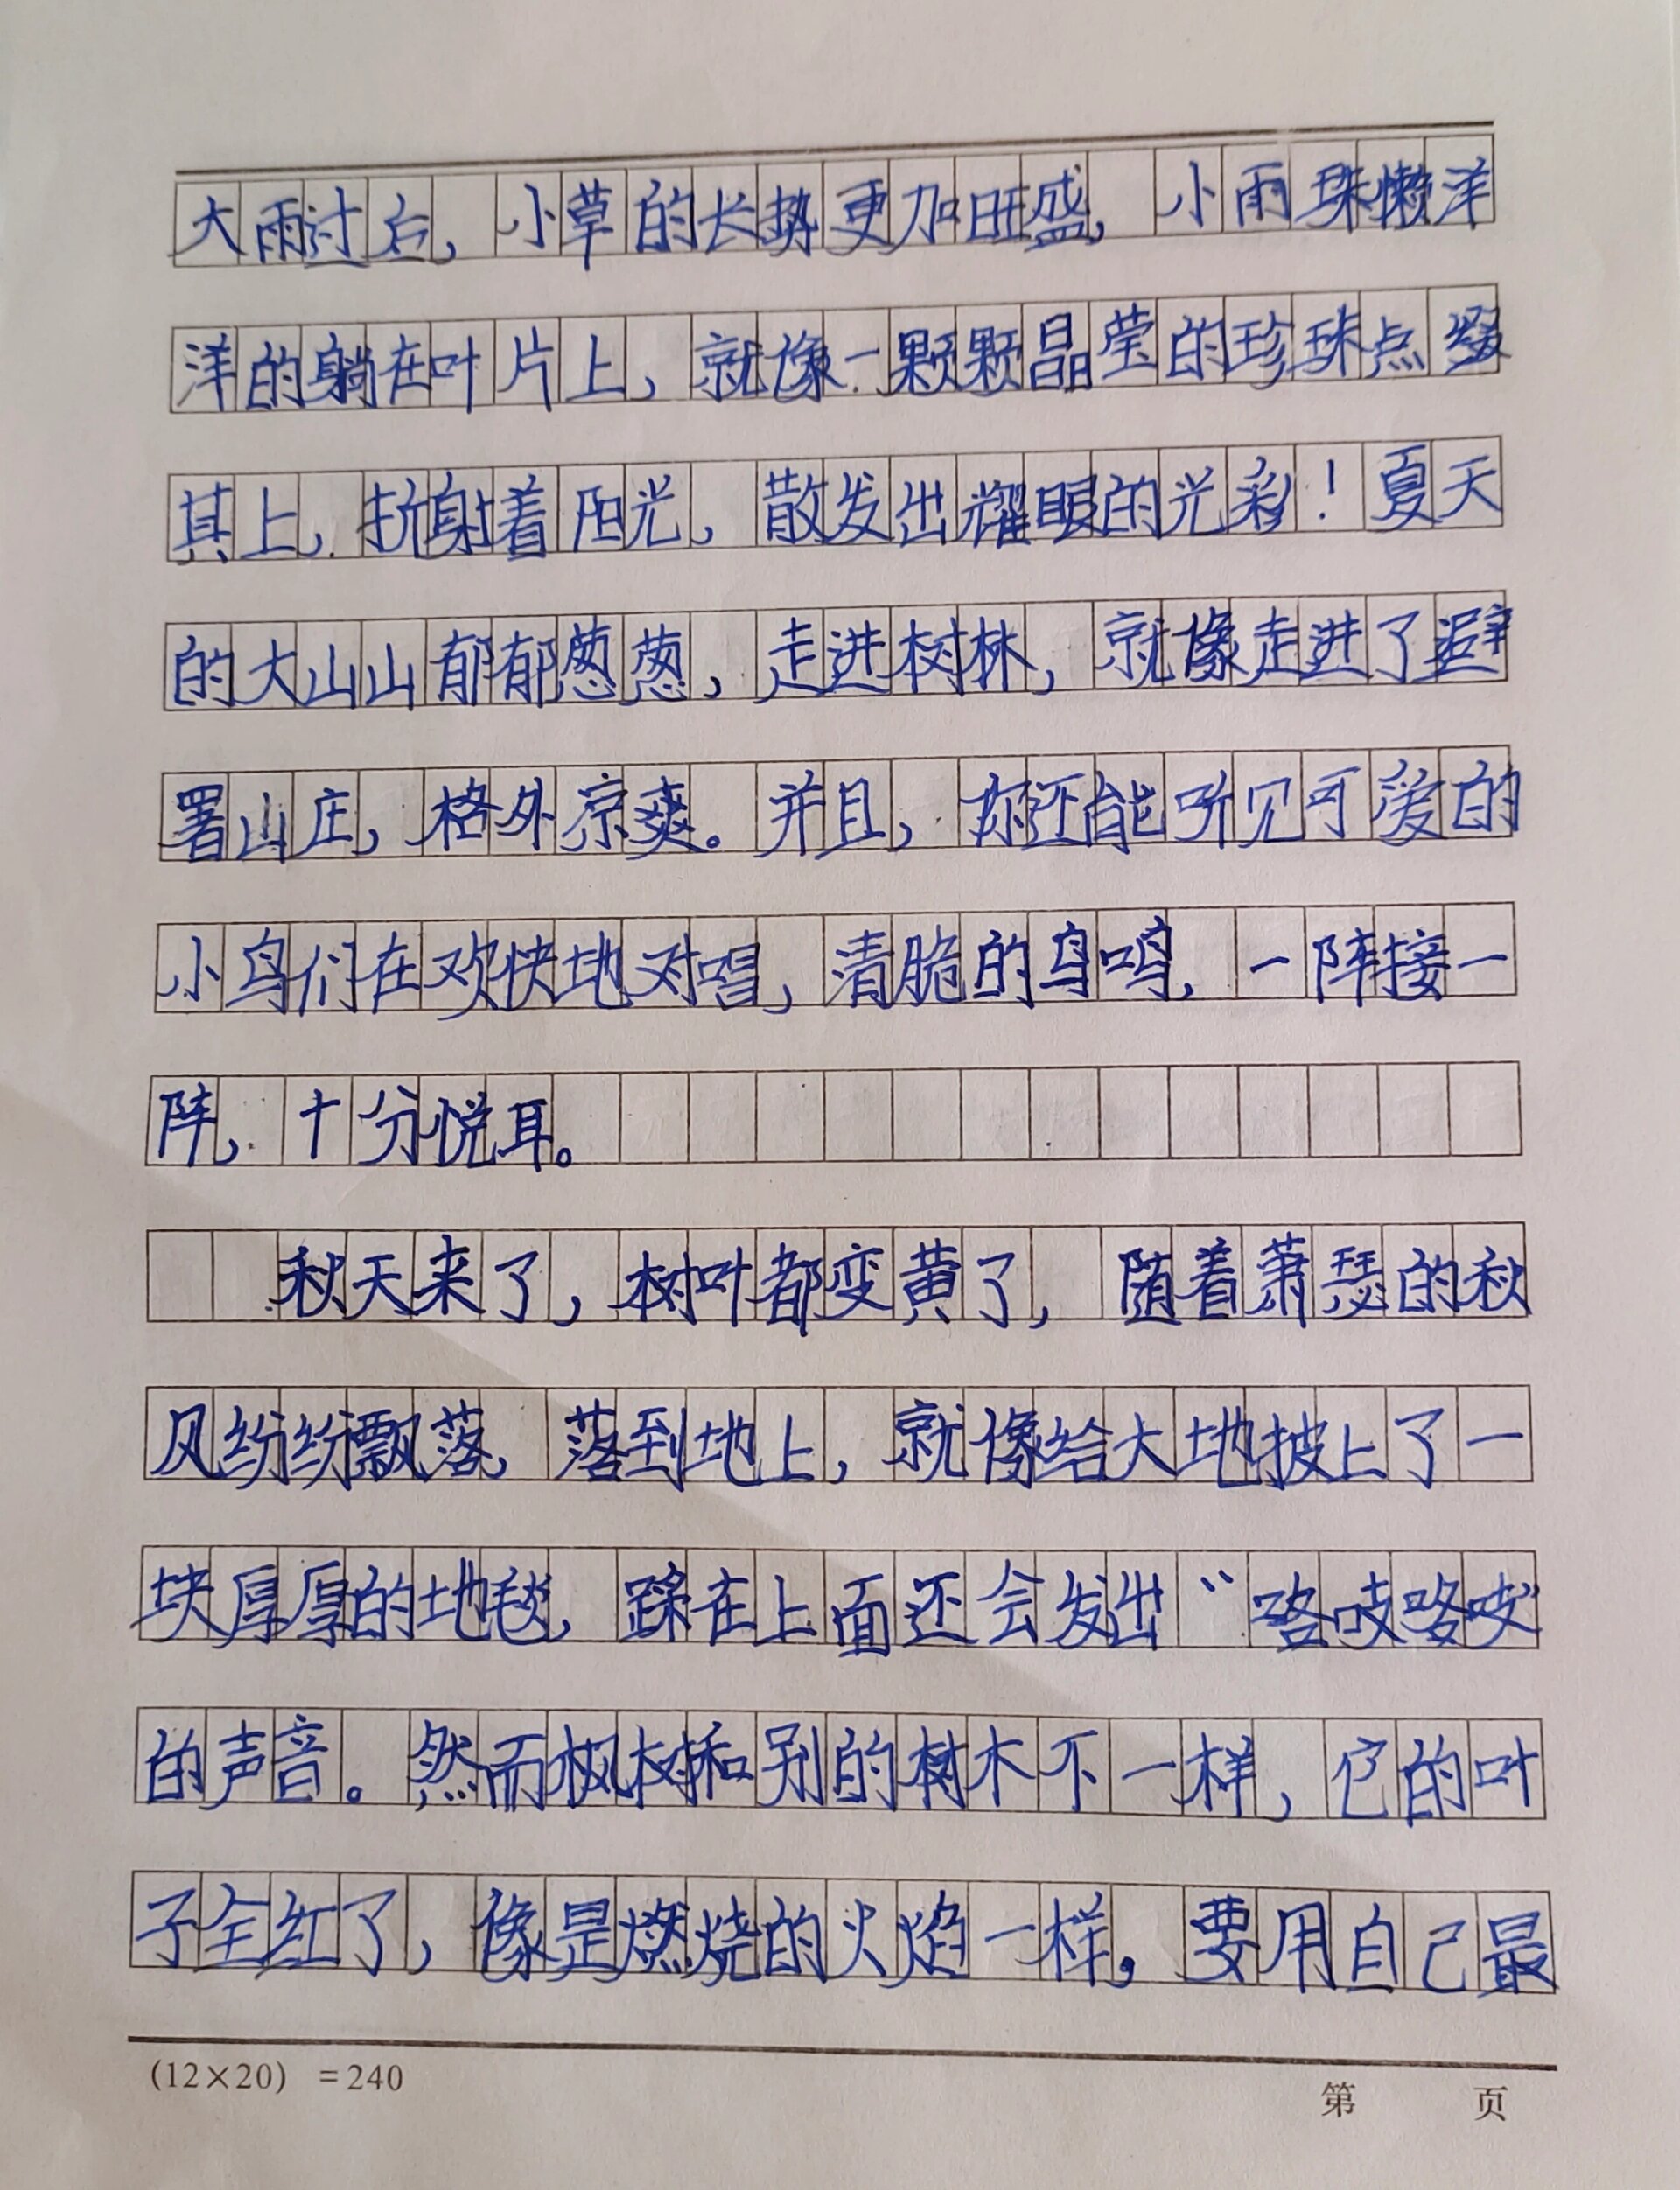 大雨过后，小草的长势更加旺盛，小雨珠懒洋
洋的躺在叶片上，就像一颗颗晶莹的珍珠点缀
其上，折射着阳光，散发出耀眼的光彩！夏天
的大山山郁郁葱葱，走进树林，就像走进了避
署山庄，格外凉爽。并且，你还能听见可爱的
小鸟们在欢快地对唱，清脆的鸟鸣，一阵接一
阵，十分悦耳。
秋天来了，树叶都变黄了，随着萧瑟的秋
风纷纷飘落，落到地上，就像给大地披上了一
块厚厚的地毯，踩在上面还会发出“咯吱咯吱”
的声音。然而枫树和别的树木不一样，它的叶
子全红了，像是燃烧的火焰一样。要用自己最
(12×20) =240
第 页